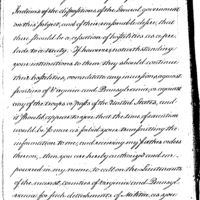 structions of the dispositions of the General government
on this subject, and of their reasonable desire, that
there should be a cessation of hostilities as a pre-
lude to a treaty. If however, notwithstanding
your intimations to them, they should continue
their hostilities, or meditate any incursions against
frontiers of Virginia and Pennsylvania, or against
any of the troops or posts of the United States, and
it should appear to you that the time of execution
would be so near as to forbid your transmitting the
information to me, and receiving my further orders
thereon, then you are hereby authorized and em-
powered in my name, to call on the Lieutenants
of the nearest counties of Virginia and Pennsyl-
vania for such detachments of Militia, as you